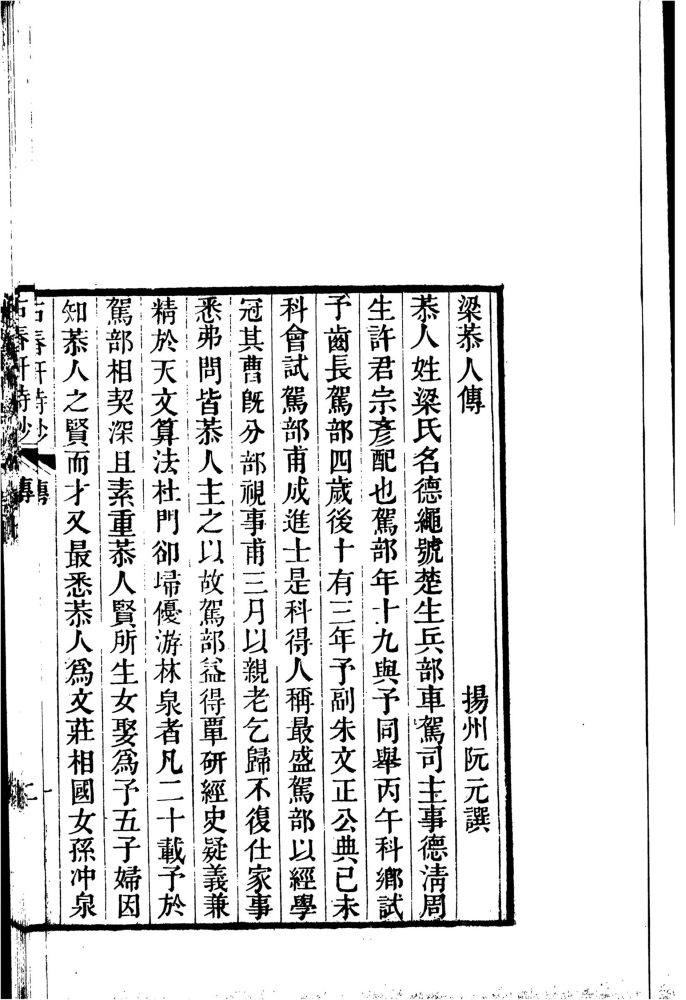 梁恭人傳
揚州阮元譔
恭人姓梁氏名德繩號楚生兵部車駕司主事德清周
生許君宗彥配也駕部年十九與予同舉丙午科鄉試
予齒長駕部四歲後十有三年予副朱文正公典己未
科會試駕部甫成進士是科得人稱最盛駕部以經學
冠其曹旣分部視事甫三月以親老乞歸不復仕家事
悉弗問皆恭人主之以故駕部益得覃研經史疑義兼
精於天文算法杜門卻埽優游林泉者凡二十載予於
駕部相契深且素重恭人賢所生女娶爲予五子婦因
知恭人之賢而才又最悉恭人爲文莊相國女孫冲泉
古春軒詩鈔 傳 一